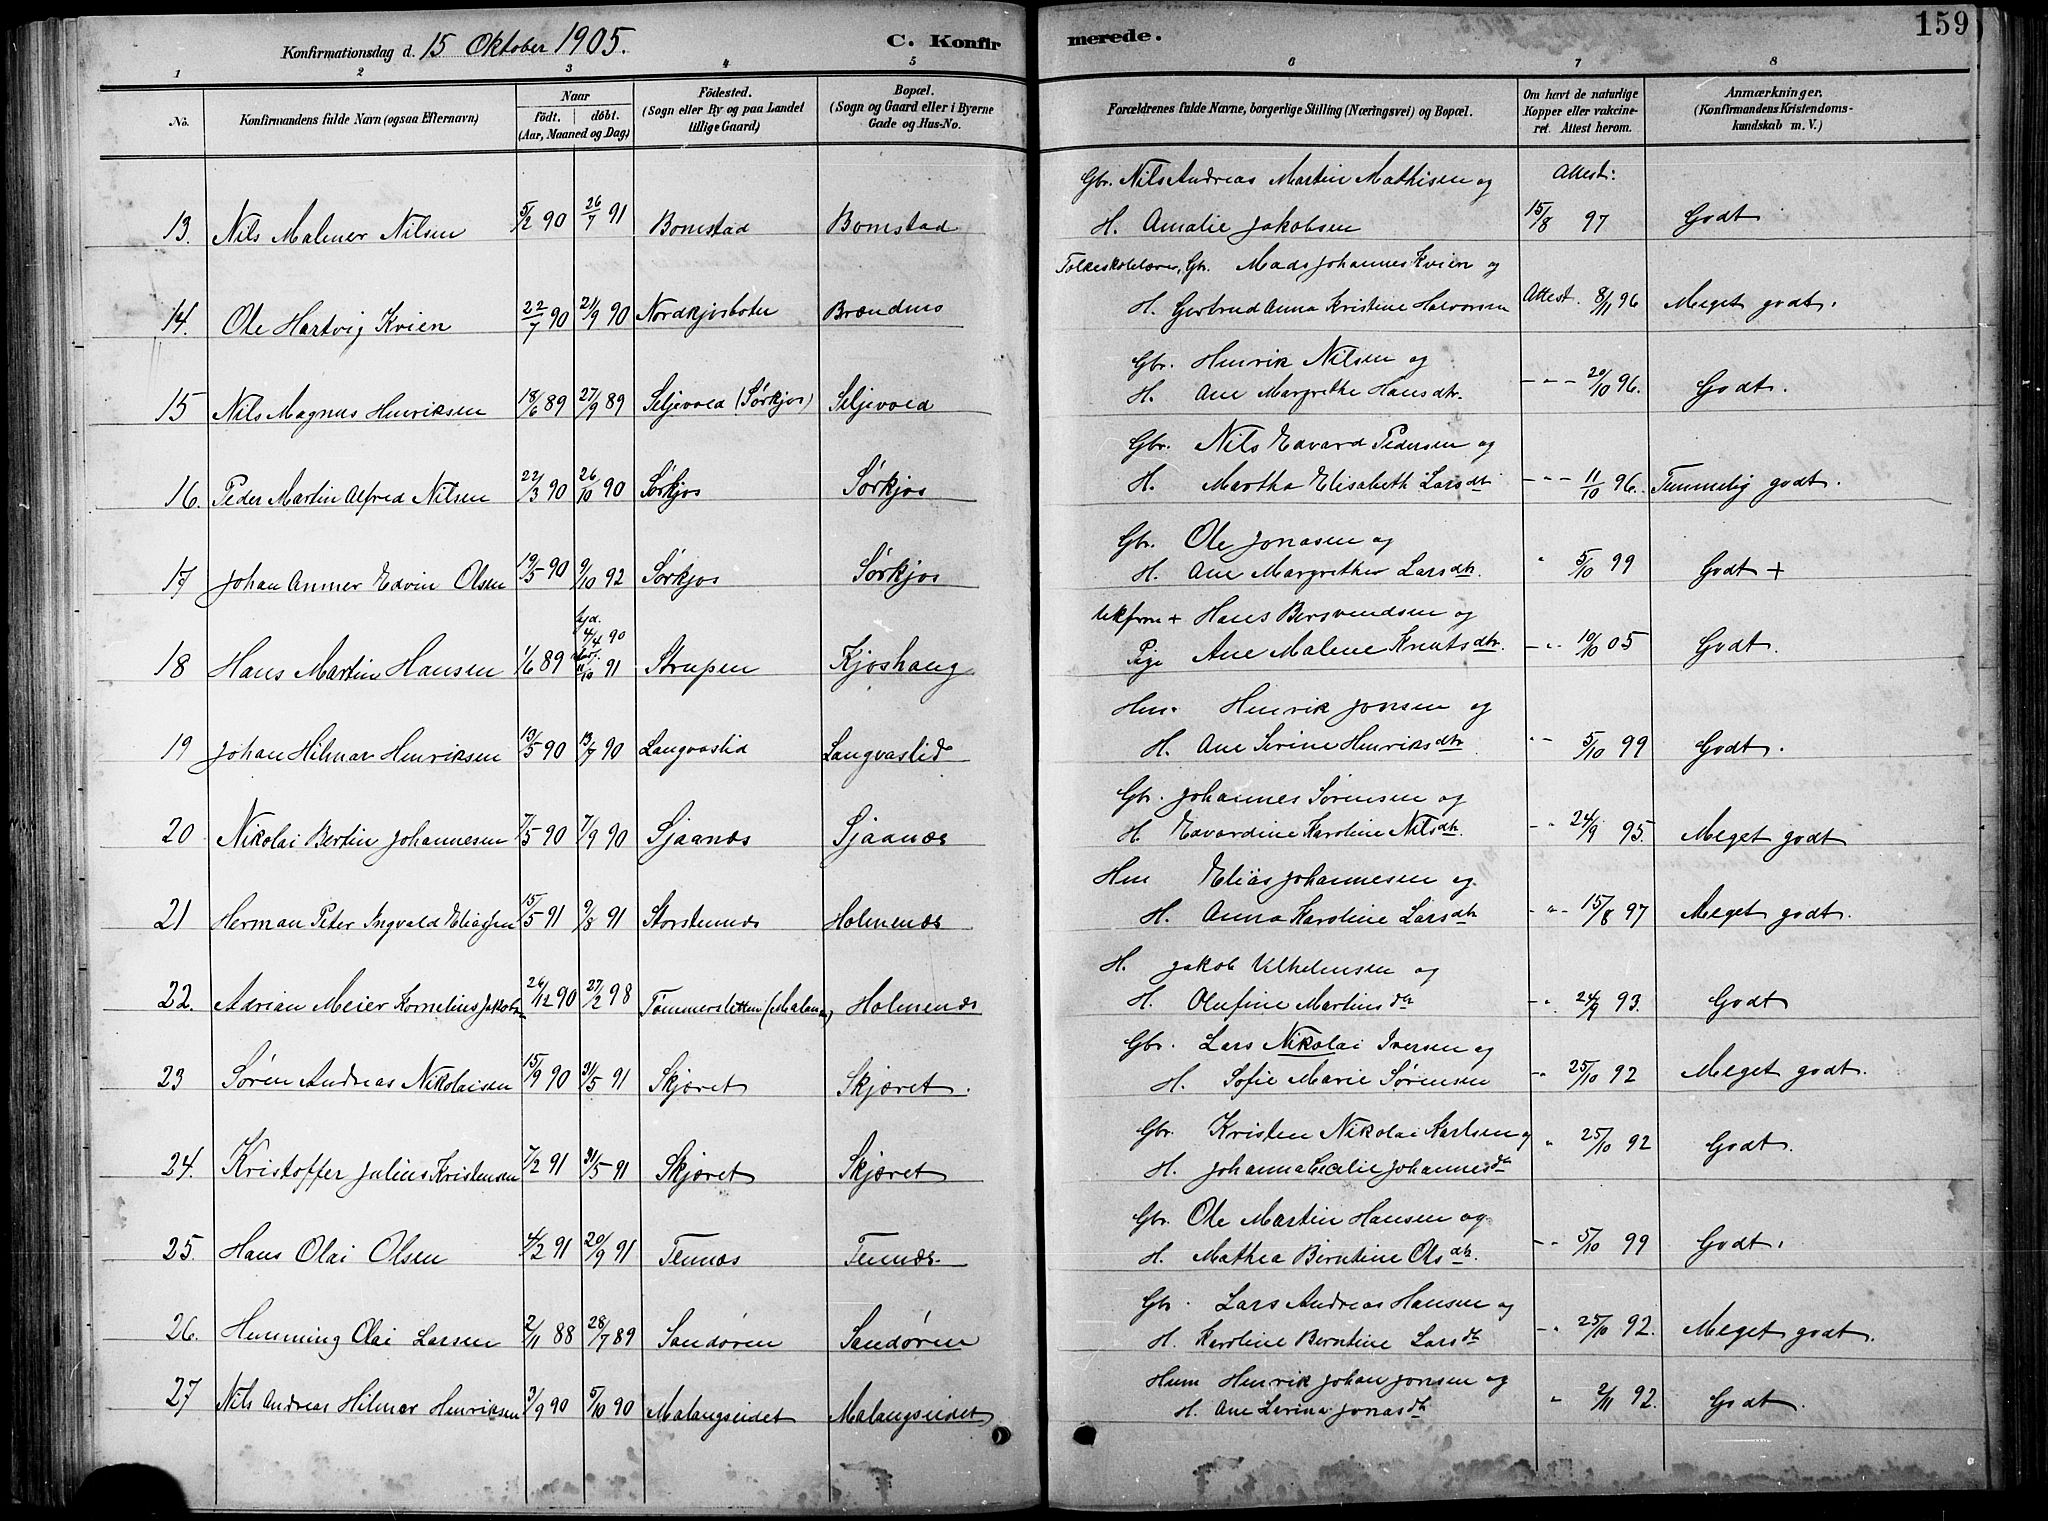 159
Konfirmationsdag d. 15 Oktober 1905.
C. Konfirmerede.
1 2 3 4 5 6 7 8
No. Konfirmandens fulde Navn (ogsaa Efternavn) Naar födt. döbt. (Aar, Maaned og Dag) Födested. (Sogn eller By og paa Landet tillige Gaard) Bopæl. (Sogn og Gaard eller i Byerne Gade og Hus-No. Forældrenes fulde Navne, borgerlige Stilling (Næringsvei) og Bopæl. Om havt de naturlige Kopper eller vakcineret. Attest herom. Anmærkninger. (Konfirmandens Kristendomskundskab m. V.)
Gbr. Nils Andreas Martin Mathisen og Attest:
13. Nils Malmer Nilsen 5/2 90 26/7 91 Bomstad Bomstad H. Amalie Jakobsen 15/8 97 Godt
Folkeskolelærer, Gbr. Mads Johannes Kvien og
14. Ole Hartvig Kvien 22/7 90 21/9 90 Nordkjosboten Brændnes H. Gertrud Anna Kristine Halvorsen Attest. 8/11 96 Meget godt.
Gbr. Henrik Nilsen og
15 Nils Magnus Henriksen 18/6 89 27/9 89 Seljevold (Sørkjos) Seljevold H. Ane Margrethe Hansdtr. - " - 20/10 96. Godt.
Gbr. Nils Edvard Pedersen og
16. Peder Martin Alfred Nilsen 22/3 90 26/10 90 Sørkjos Sørkjos H. Martha Elisabeth Larsdtr - " - 11/10 96. Temmelig godt.
Gbr. Ole Jonasen og
17 Johan Anmer Edvin Olsen 19/5 90 9/10 92 Sørkjos Sørkjos H. Ane Margrethe Larsdtr. " 5/10 99 Godt +
Ukfrm + Hans Bersvendsen og
18 Hans Martin Hansen 1/6 89 hjd. 4/4 90 11/10 91 Strupen Kjoshaug Pige Ane Malene Knutsdtr. - " - 10/10 05 Godt.
Hm. Henrik Jonsen og
19 Johan Hilmar Henriksen 13/5 90 13/7 90 Langvaslid Langvaslid H. Ane Serine Henriksdtr " - 5/10 99 Godt.
Gbr. Johannes Sørensen og
20 Nikolai Bertin Johannesen 7/5 90 7/9 90 Sjaanæs Sjaanæs H. Edvardine Karoline Nilsdtr. - " 24/9 95. Meget godt
Hm Elias Johannesen og
21 Herman Peter Ingvald Eliassen 15/5 91 9/8 91 Storstennæs Holmenæs H. Anna Karoline Larsdtr - " - 15/8 97 Meget godt.
H. Jakob Vilhelmsen og
22. Adrian Meier Kornelius Jakobsen 26/12 90 27/2 98 Tømmersletten (Malangen) Holmenæs H. Olufine Martinsdtr - " 24/9 93. Godt
Gbr. Lars Nikolai Iversen og
23 Søren Andreas Nikolaisen 15/9 90 31/5 91 Skjæret Skjæret. H. Sofie Marie Sørensen - " 25/10 92 Meget godt.
Gbr. Kristen Nikolai Karlsen og
24. Kristoffer Julius Kristensen 7/2 91 31/5 91 Skjæret Skjæret H. Johanna Cecilie Johannesdtr " 25/10 92 Godt.
Gbr. Ole Martin Hansen og
25. Hans Olai Olsen 4/2 91 20/9 91 Tennæs Tennæs H. Mathea Berntine Olsdtr. - " - 5/10 99 Godt.
Gbr. Lars Andreas Hansen og
26. Hemming Olai Larsen 2/11 88 28/7 89 Sandøren Sandøren H. Karoline Berntine Larsdtr - " 25/10 92. Meget godt.
Husm Henrik Johan Jonsen og
27 Nils Andreas Hilmar Henriksen 3/9 90 5/10 90 Malangseidet Malangseidet H. Ane Serina Jonasdtr " 2/11 92. Godt.